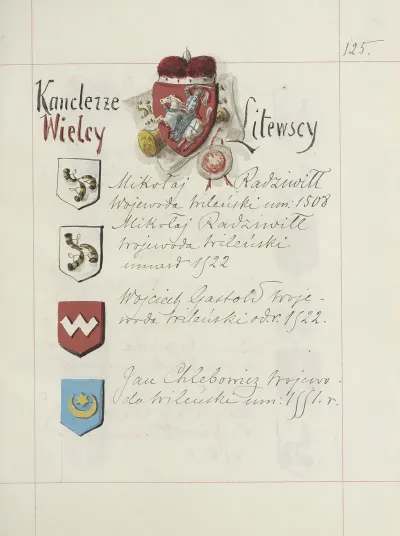 125.
Kanclerze
Wielcy
Litewscy
Mikołaj Radziwiłł
Wojewoda wileński um: 1508
Mikołaj Radziwiłł
wojewoda wileński
umarł 1522
Wojciech Gastołd woje-
woda wileński od r. 1522.
Jan Chlebowicz wojewo-
da wileński um: 1551. r.